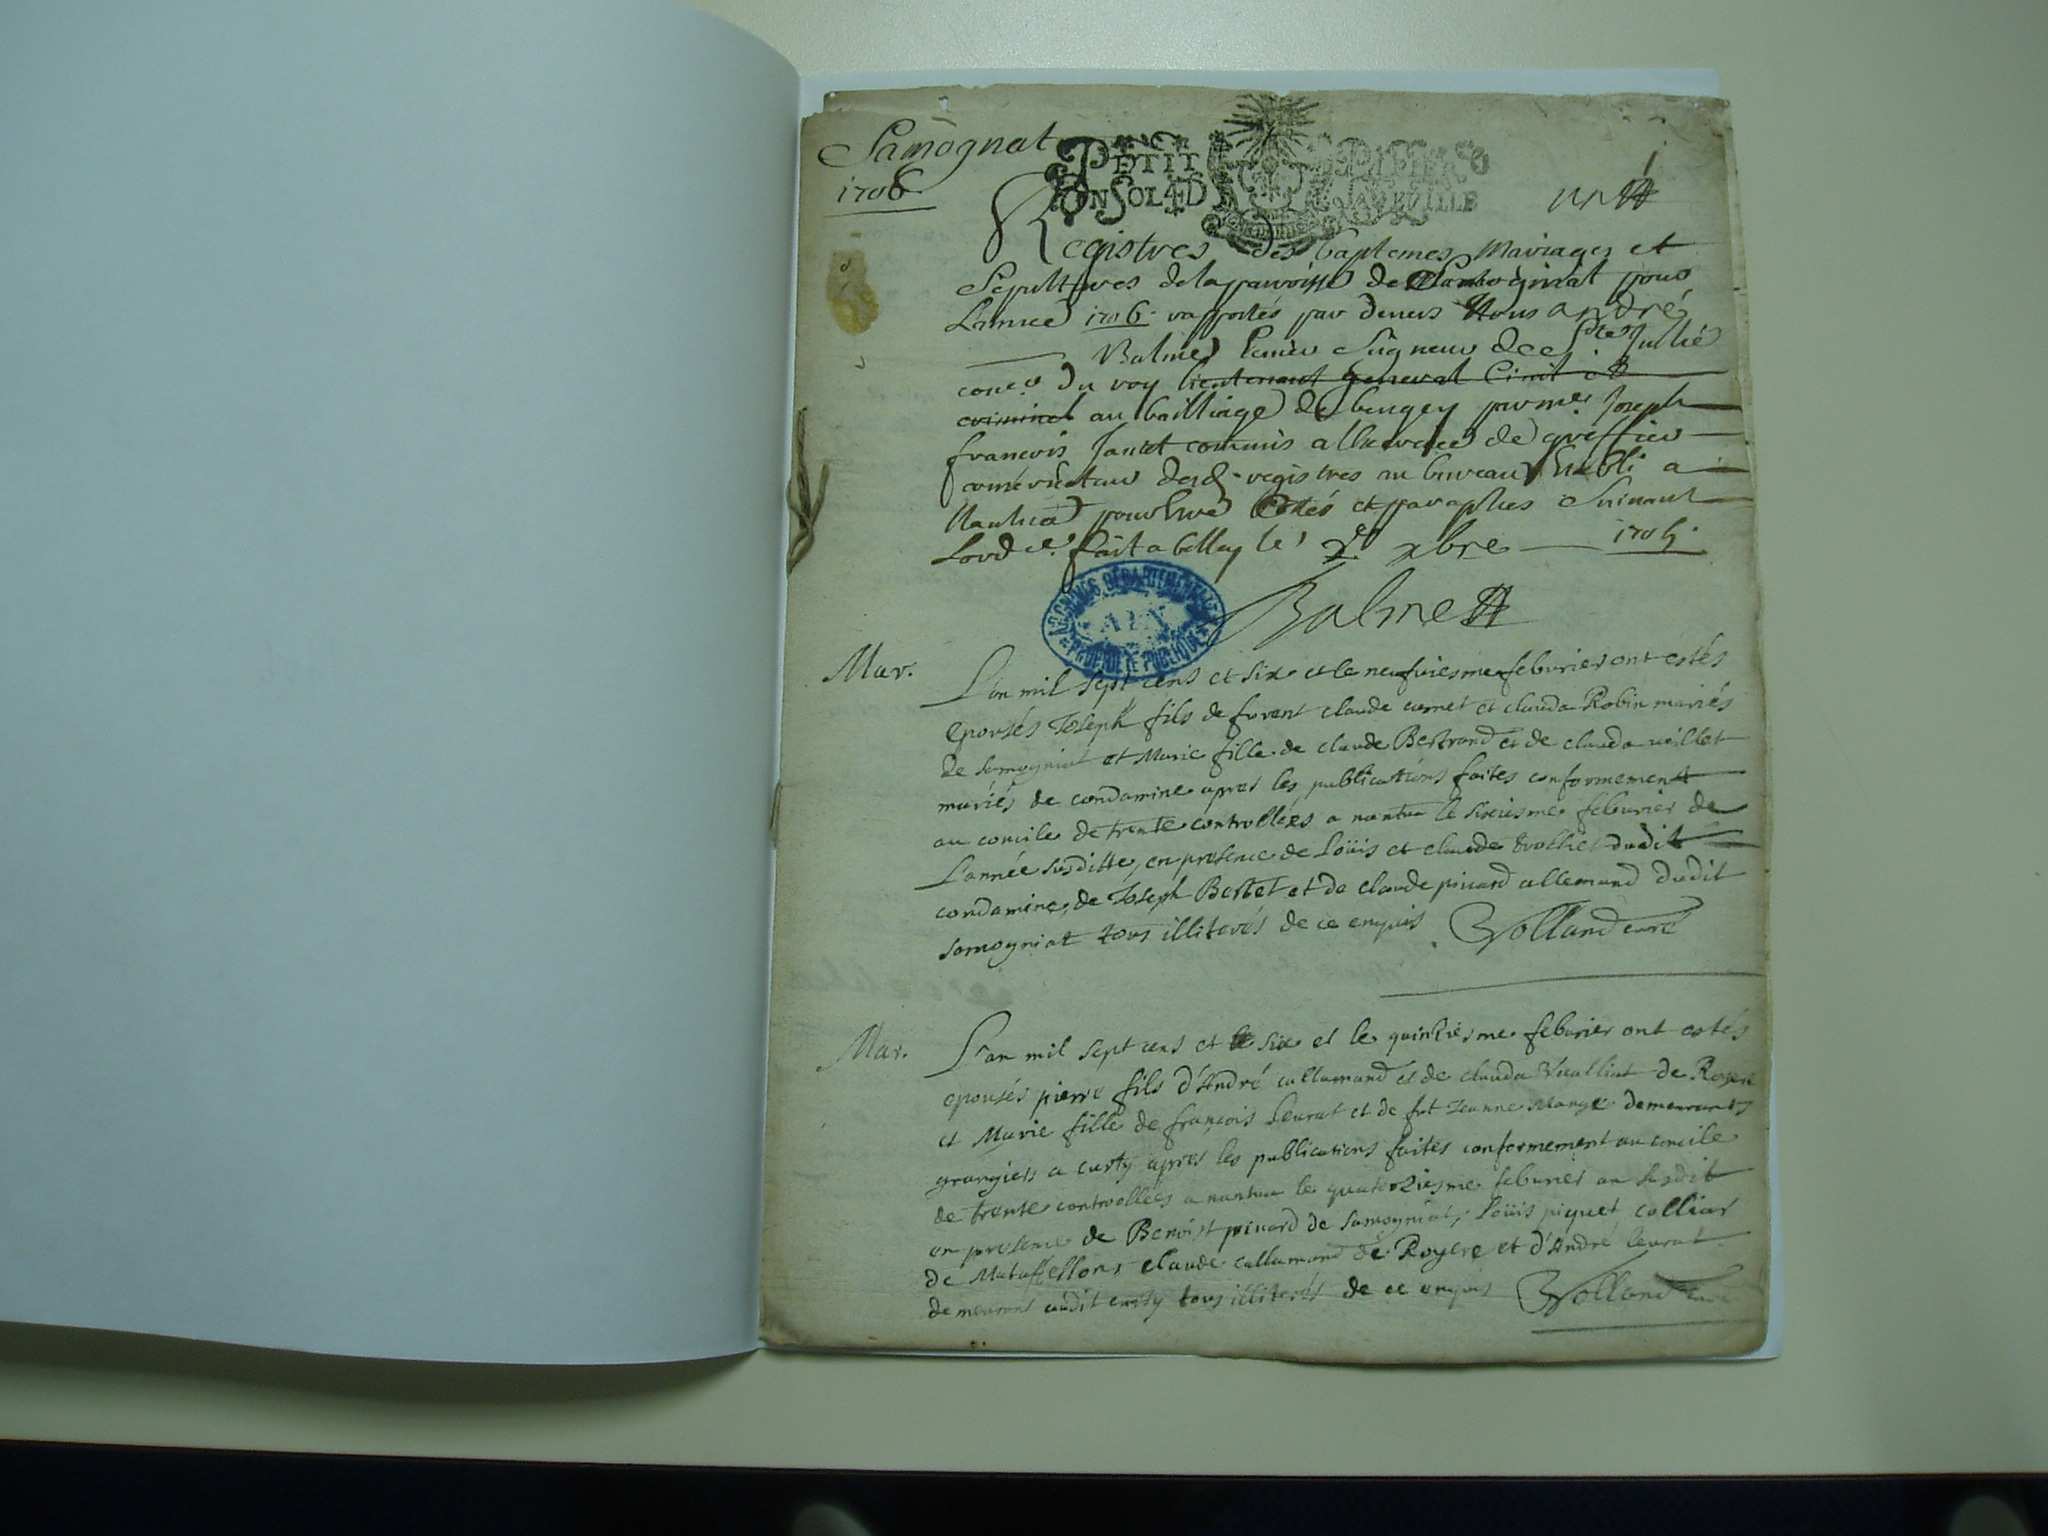 Samognat
1706
PETIT PAPIER
UN SOL 4D LA FEUILLE
un
Registres des baptemes Mariages et
Sepultures de la parroisse de Samognat pour
L'année 1706 rapportés par devers Nous andré
Balme Ecuier Seigneur de Ste Jullie
coner du roy lieutenant general Civil et
criminel au bailliage de beugey par me. Joseph
francois Jantet commis a l'exercice de greffier
conservateur desd. registres au bureau Etabli a
Nantua pour Etre Cottés et paraphes Suivant
Lordce. fait a belley le 2e xbre 1705.
Balme
ARCHIVES DÉPARTEMENTALES
AIN
PROPRIÉTÉ PUBLIQUE
Mar.
L'an mil sept cens et six et le neufviesme febvrier ont estés
epousés Joseph fils de furent claude carnet et clauda Robin mariés
de samogniat et Marie fille de claude Bertrand et de clauda vuillet
mariés de condamine apres les publications faites conformement
au concile de trente controllées a nantua le sixiesme febvrier de
L'année susditte, en presence de Loüis et claude trolliet dudit
condamine, de Joseph Bertet et de claude picard allemand dudit
samogniat tous illiterés de ce enquis Volland curé
Mar.
L'an mil sept cens et six et le quinziesme febvrier ont estés
epousés pierre fils d'André callamand et de clauda Vuilliat de Royere
et Marie fille de françois Leurat et de fut Jeanne Mange demeurants
grangiers a curty apres les publications faites conformement au concile
de trente controllées a nantua le quatorziesme febvrier an susdit
en presence de Benoist picard de samogniat, Loüis piquet colliar
de Mataffellons, claude callamand de Royere et d'André leurat
demeurant audit curty tous illiterés de ce enquis Volland curé